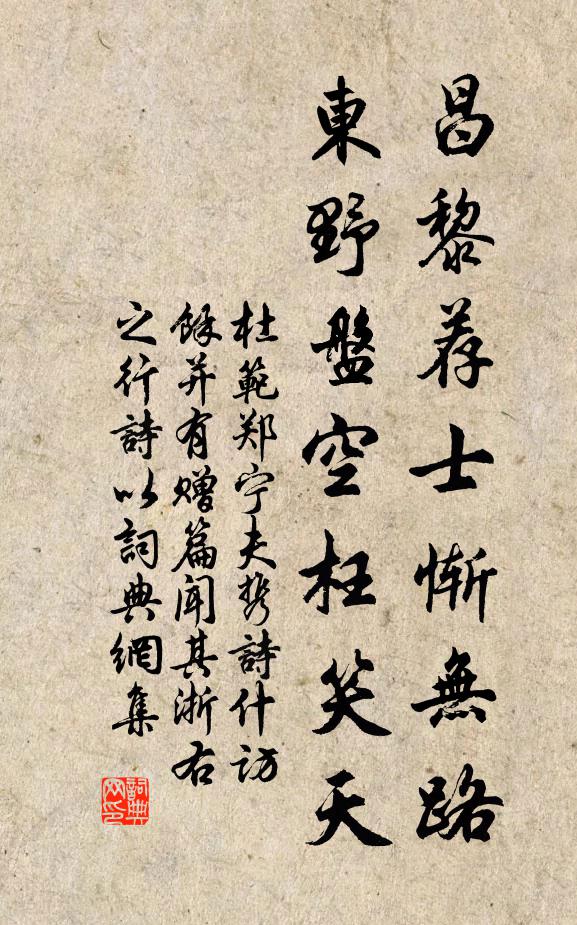 昌黎荐士惭無路
東野盤空枉笑天
杜範郑宁夫携詩什访
餘并有赠篇聞其浙右
之行詩以詞典網集
詞典网印